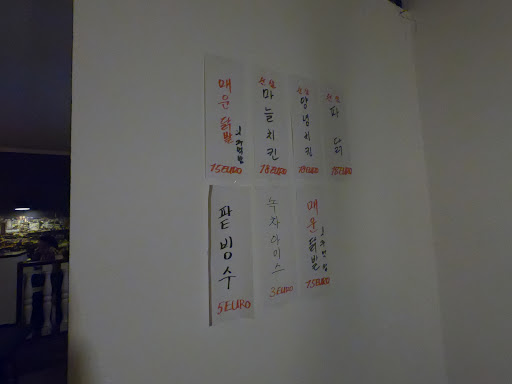 매운닭발
15EURO
순살
마늘치킨
18EURO
순살
양념치킨
18EURO
순살
파닭
18EURO
팥빙수
5EURO
녹차아이스
3EURO
매운닭발
15EURO